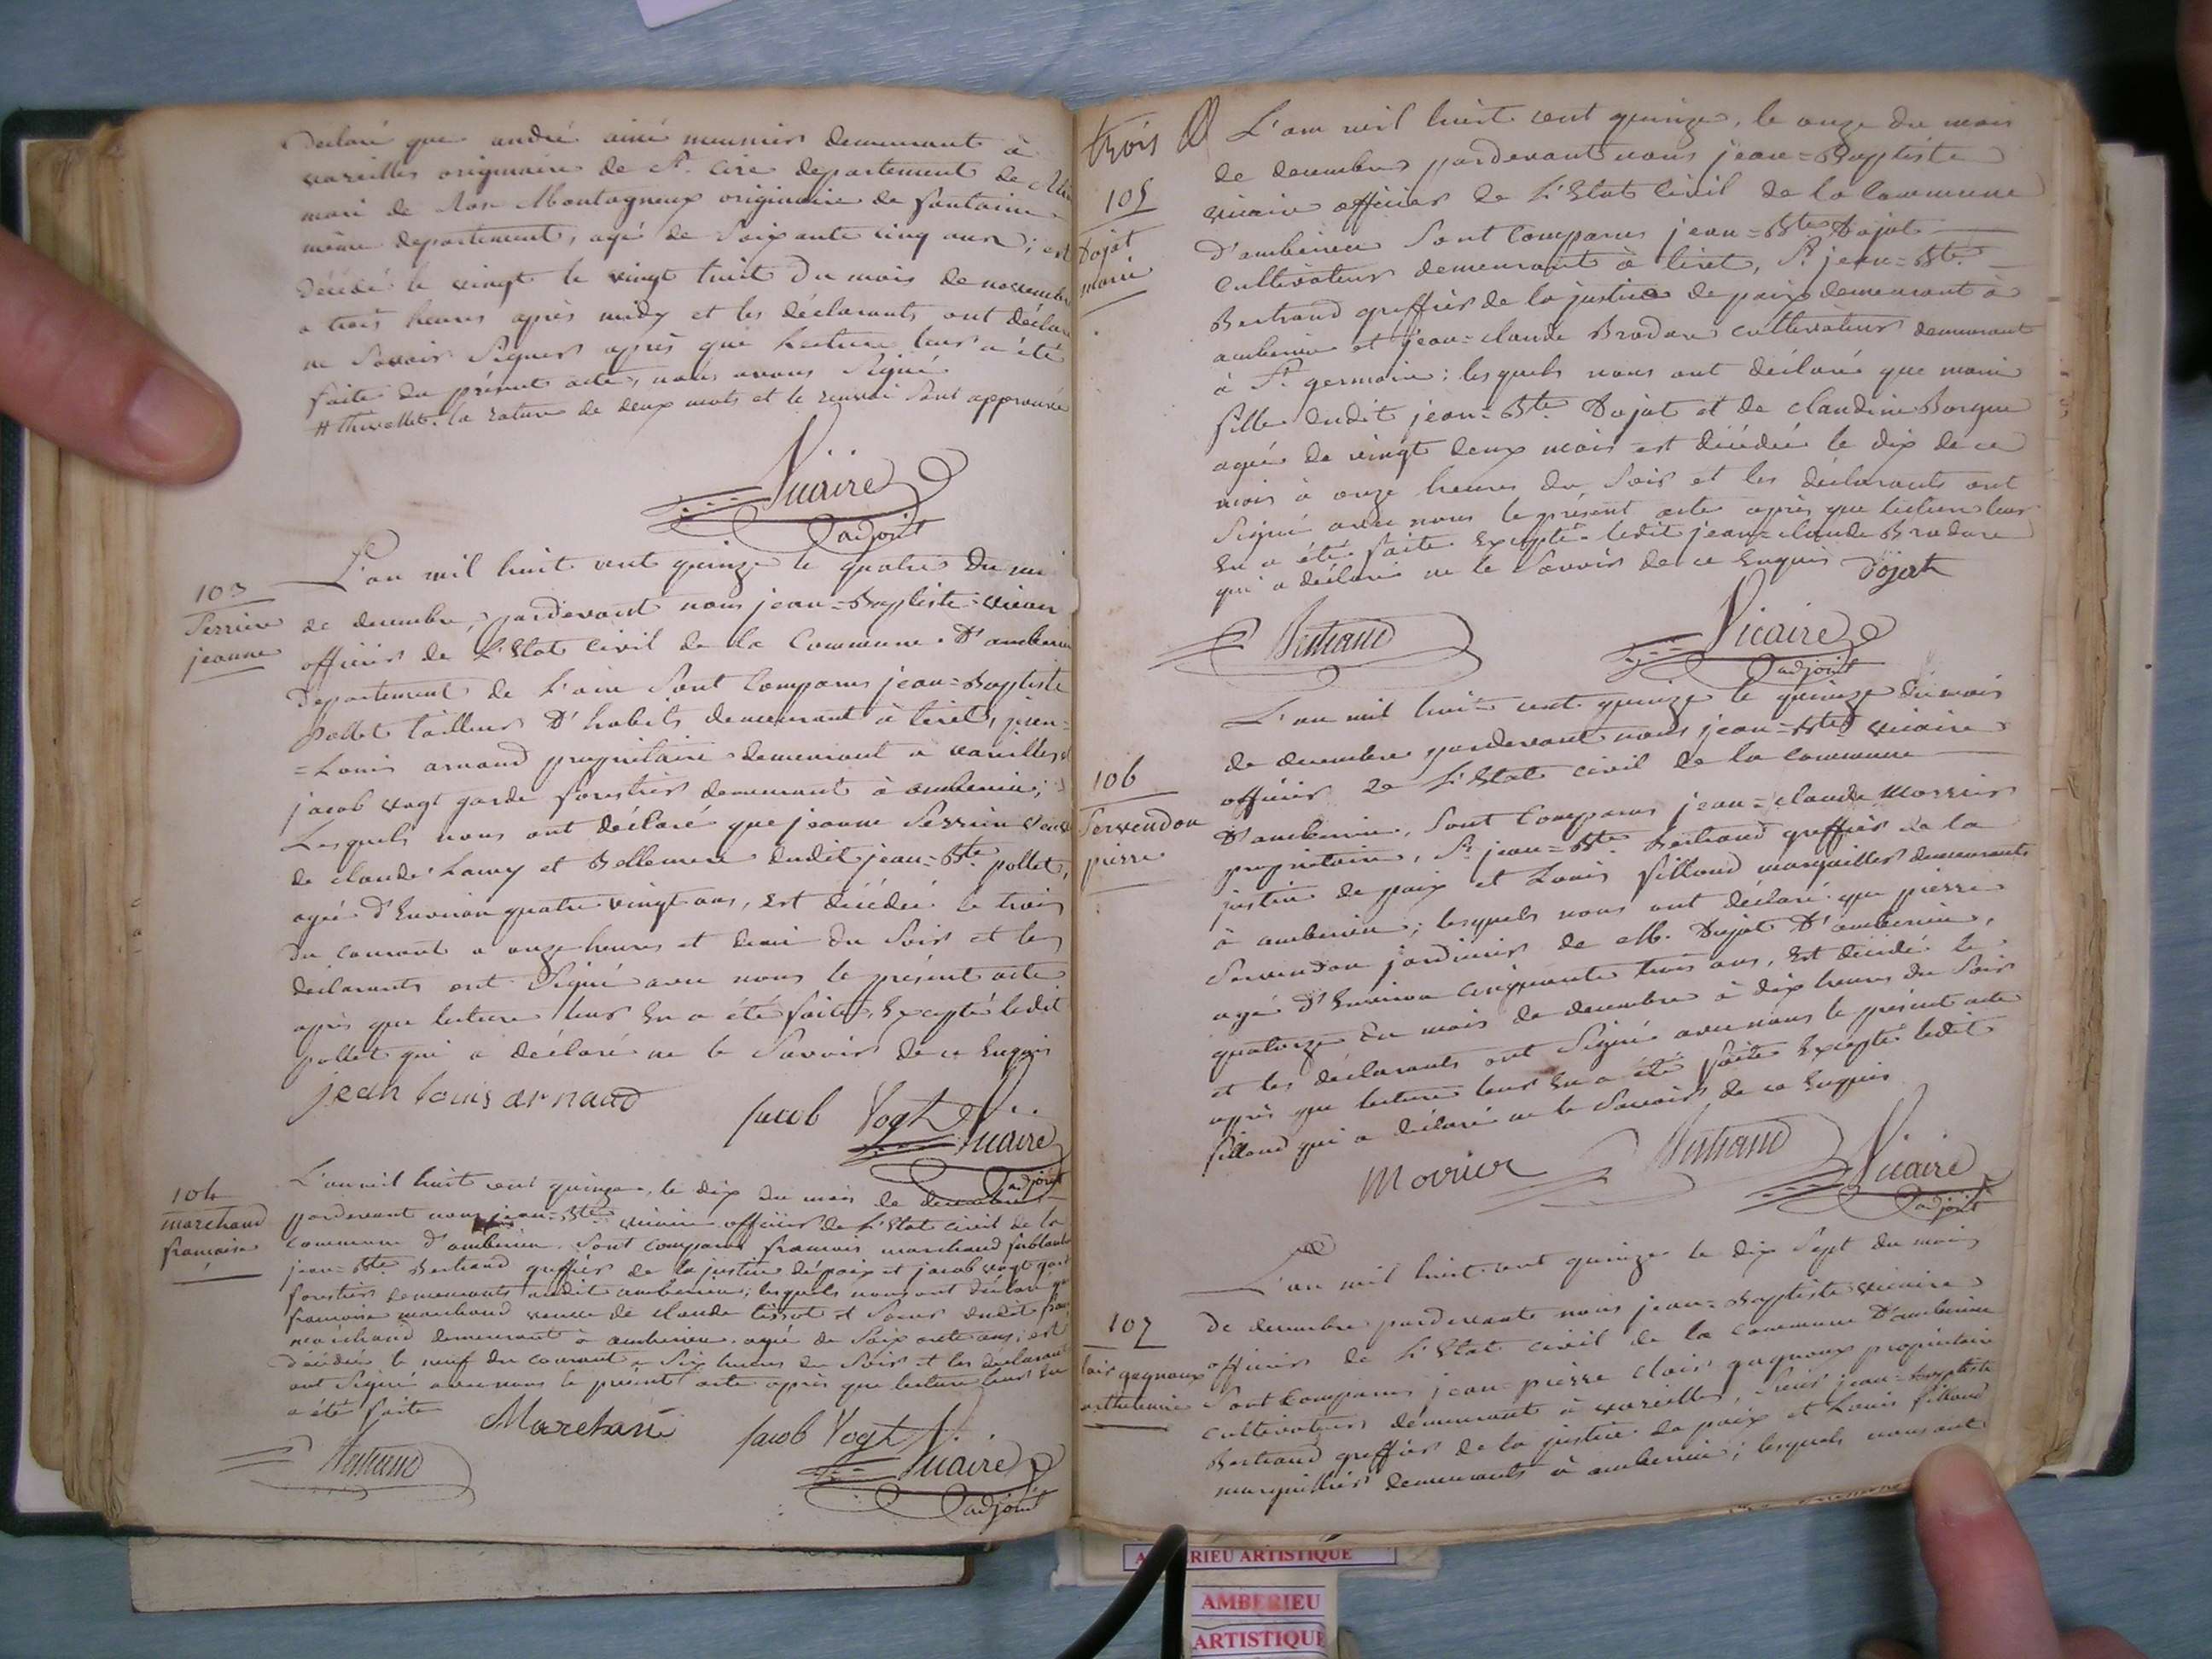 declaré que andré aimé meunier demeurant à
vareilles originaire de St. cire departement de
mari de Montagneux originaire de fontaine
même departement, agé de soixante cinq ans ; est
décédé le vingt le vingt huit du mois de novembre
a trois heures après midy et les déclarants ont déclaré
ne savoir signer après que lecture leur a été
faite du présent acte, nous avons signé
# thevollet. la rature de deux mots et le renvoi sont approuvés
Vicaire
adjoint
103
Perrine
jeanne
L'an mil huit cent quinze le quatre du moi
de decembre, pardevant nous jean=Baptiste vicaire
officier de L'Etat civil de la Commune D'amberieu
Departement de L'ain sont Comparus jean=Baptiste
pollet tailleur D'habits demeurant à tiret, jean=
=Louis arnaud proprietaire demeurant a vareilles et
jacob vogt garde forestier demeurant à amberieu ;
Lesquels nous ont déclaré que jeanne veuve
de claude Lamy et Bellemere dudit jean=Bte pollet,
agée d'Environ quatre vingt ans, est décédée le trois
du courant a onze heures et demi du soir et les
déclarants ont signé avec nous le présent acte
après que lecture leur En a été faite, Excepté ledit
pollet qui a déclaré ne le savoir de ce Enquis
jean louis arnaud
jacob Vogt
Vicaire
adjoint
104
marchand
françoise
L'an mil huit cent quinze, le dix du mois de decembre
pardevant nous jean=Bte vicaire officier de L'Etat civil de la
commune d'amberieu. sont comparus francois marchand ferblantier
jean=Bte Bertrand greffier de la justice de paix et jacob vogt garde
forestier demeurants audit amberieu ; lesquels nous ont déclaré que
francoise marchand veuve de claude tissot et soeur dudit fran
marchand demeurant à amberieu. agée de soixante ans ; est
décédée le neuf du courant a six heures du soir et les déclarants
ont signé avec nous le présent acte après que lecture leur En
a été faite
Marchand
jacob Vogt
Bertrand
Vicaire
adjoint
trois
105
Dojat
marie
L'an mil huit cent quinze, le onze du mois
de decembre pardevant nous jean=Baptiste
vicaire officier de L'Etat Civil de la Commune
D'amberieu sont Comparus jean=Bte Dojat
Cultivateur demeurant à tiret, Sr. jean=Bte
Bertrand greffier de la justice de paix demeurant à
amberieu et jean=claude Brodare cultivateur demeurant
à St. germain ; lesquels nous ont déclaré que marie
fille dudit jean=Bte Dojat et de claudine
agée de vingt deux mois est décédée le dix de ce
mois à onze heures du soir et les déclarants ont
signé avec nous le présent acte après que lecture leur
En a été faite Excepté ledit jean=claude Brodare
qui a déclaré ne le savoir de ce Enquis
Dojat
Bertrand
Vicaire
adjoint
106
Servendon
pierre
L'an mil huit cent quinze le quinze du mois
de decembre pardevant nous jean=Bte vicaire
officier de L'Etat civil de la commune
D'amberieu, sont Comparus jean=claude morrier
proprietaire, Sr. jean=Bte Bertrand greffier de la
justice de paix et Louis filloud marguillier demeurants
à amberieu ; lesquels nous ont déclaré que pierre
Servendon jardinier de M. Dujat D'amberieu,
agé d'Environ cinquante trois ans, est décédé le
quatorze du mois de decembre à dix heures du soir
et les déclarants ont signé avec nous le présent acte
après que lecture leur En a été faite Excepté ledit
filloud qui a déclaré ne le savoir de ce Enquis
Morrier
Bertrand
Vicaire
adjoint
107
lair gagneux
L'an mil huit cent quinze le dix sept du mois
De decembre pardevant nous jean=Baptiste vicaire
officier de L'Etat civil de la commune D'amberieu
sont Comparus jean pierre clair gagneux proprietaire
cultivateur demeurant à vareilles, Sieur jean=Baptiste
Bertrand greffier de la justice de paix et Louis filloud
marguillier demeurants à amberieu ; lesquels nous ont
RIEU ARTISTIQUE
AMBERIEU
ARTISTIQUE